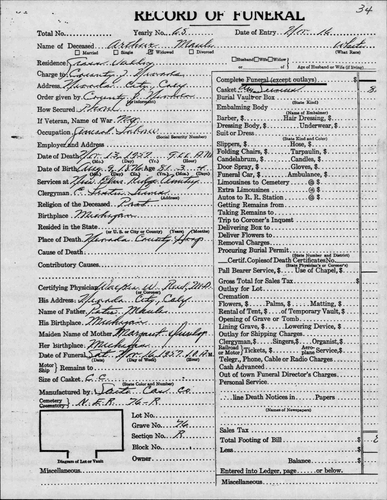 34
RECORD OF FUNERAL
Total No. Yearly No. 63 Date of Entry Nov. 16
Name of Deceased Arthur Maule White
(What Race)
Married Single Widowed Divorced
Husband Wife Widow
or Age of Husband or Wife (if living)
Residence Grass Valley
Charge to County of Nevada
Address Nevada City, Calif
Order given by County
How Secured Phone
If Veteran, Name of War No
Occupation General Labor
(Social Security Number)
Employer and Address
Date of Death Nov. 13, 1957 9:00 A.M.
Date of Birth Aug. 9, 1876 Age 81-3-4
Services at Pine Ridge Cemetery
Clergyman
Religion of the Deceased Prot
Birthplace Michigan
Resided in the State
(or U.S. or City or County) (Years) (Months) (Days)
Place of Death Nevada County Hosp
Cause of Death
Contributory Causes
Certifying Physician W. Reed, M.D.
His Address Nevada City, Calif
Name of Father Peter Maule
His Birthplace Michigan
Maiden Name of Mother Margaret Dunlop
Her birthplace Michigan
Date of Funeral Sat. Nov. 16, 1957, 10 A.M.
(Date) (Day of Week) (Hour)
Motor
Ship
Remains to
Size of Casket C.C.
(State Color and Number)
Manufactured by Cas. Co.
Cemetery
Crematory N.E.R. 76-R
Lot No.
Grave No. 76
Section No. R
Block No.
Owner
Diagram of Lot or Vault
Miscellaneous
Complete Funeral (except outlays) $
Casket Service
Burial Vault or Box
(State Kind)
Embalming Body
Barber, $ Hair Dressing, $
Dressing Body, $ Underwear, $
Suit or Dress
(State Kind and Color)
Slippers, $ Hose, $
Folding Chairs, $ Tarpaulin, $
Candelabrum, $ Candles, $
Door Spray, $ Gloves, $
Funeral Car, $ Ambulance, $
Limousines to Cemetery @ $
Extra Limousines @ $
Autos to R. R. Station @ $
Getting Remains from
Taking Remains to
Trip to Coroner's Inquest
Delivering Box to
Deliver Flowers to
Removal Charges
Procuring Burial Permit
(State Number and District)
Certif. Copies of Death Certificates No.
(State Physician's or Coroner's)
Pall Bearer Service, $ Use of Chapel, $
Gross Total for Sales Tax $
Outlay for Lot
Cremation
Flowers, $ Palms, $ Matting, $
Rental of Tent, $ of Temporary Vault, $
Opening of Grave or Tomb
Lining Grave, $ Lowering Device, $
Outlay for Shipping Charges
Clergyman, $ Singers, $ Organist, $
Railroad
or Motor Tickets, $ Aero Service, $
Telegr., Phone, Cable or Radio Charges
Cash Advanced
Out of town Funeral Director's Charges
Personal Service
line Death Notices in Papers
(Names of Newspapers)
Sales Tax
Total Footing of Bill $
Less
Balance $
Entered into Ledger, page or below.
Miscellaneous